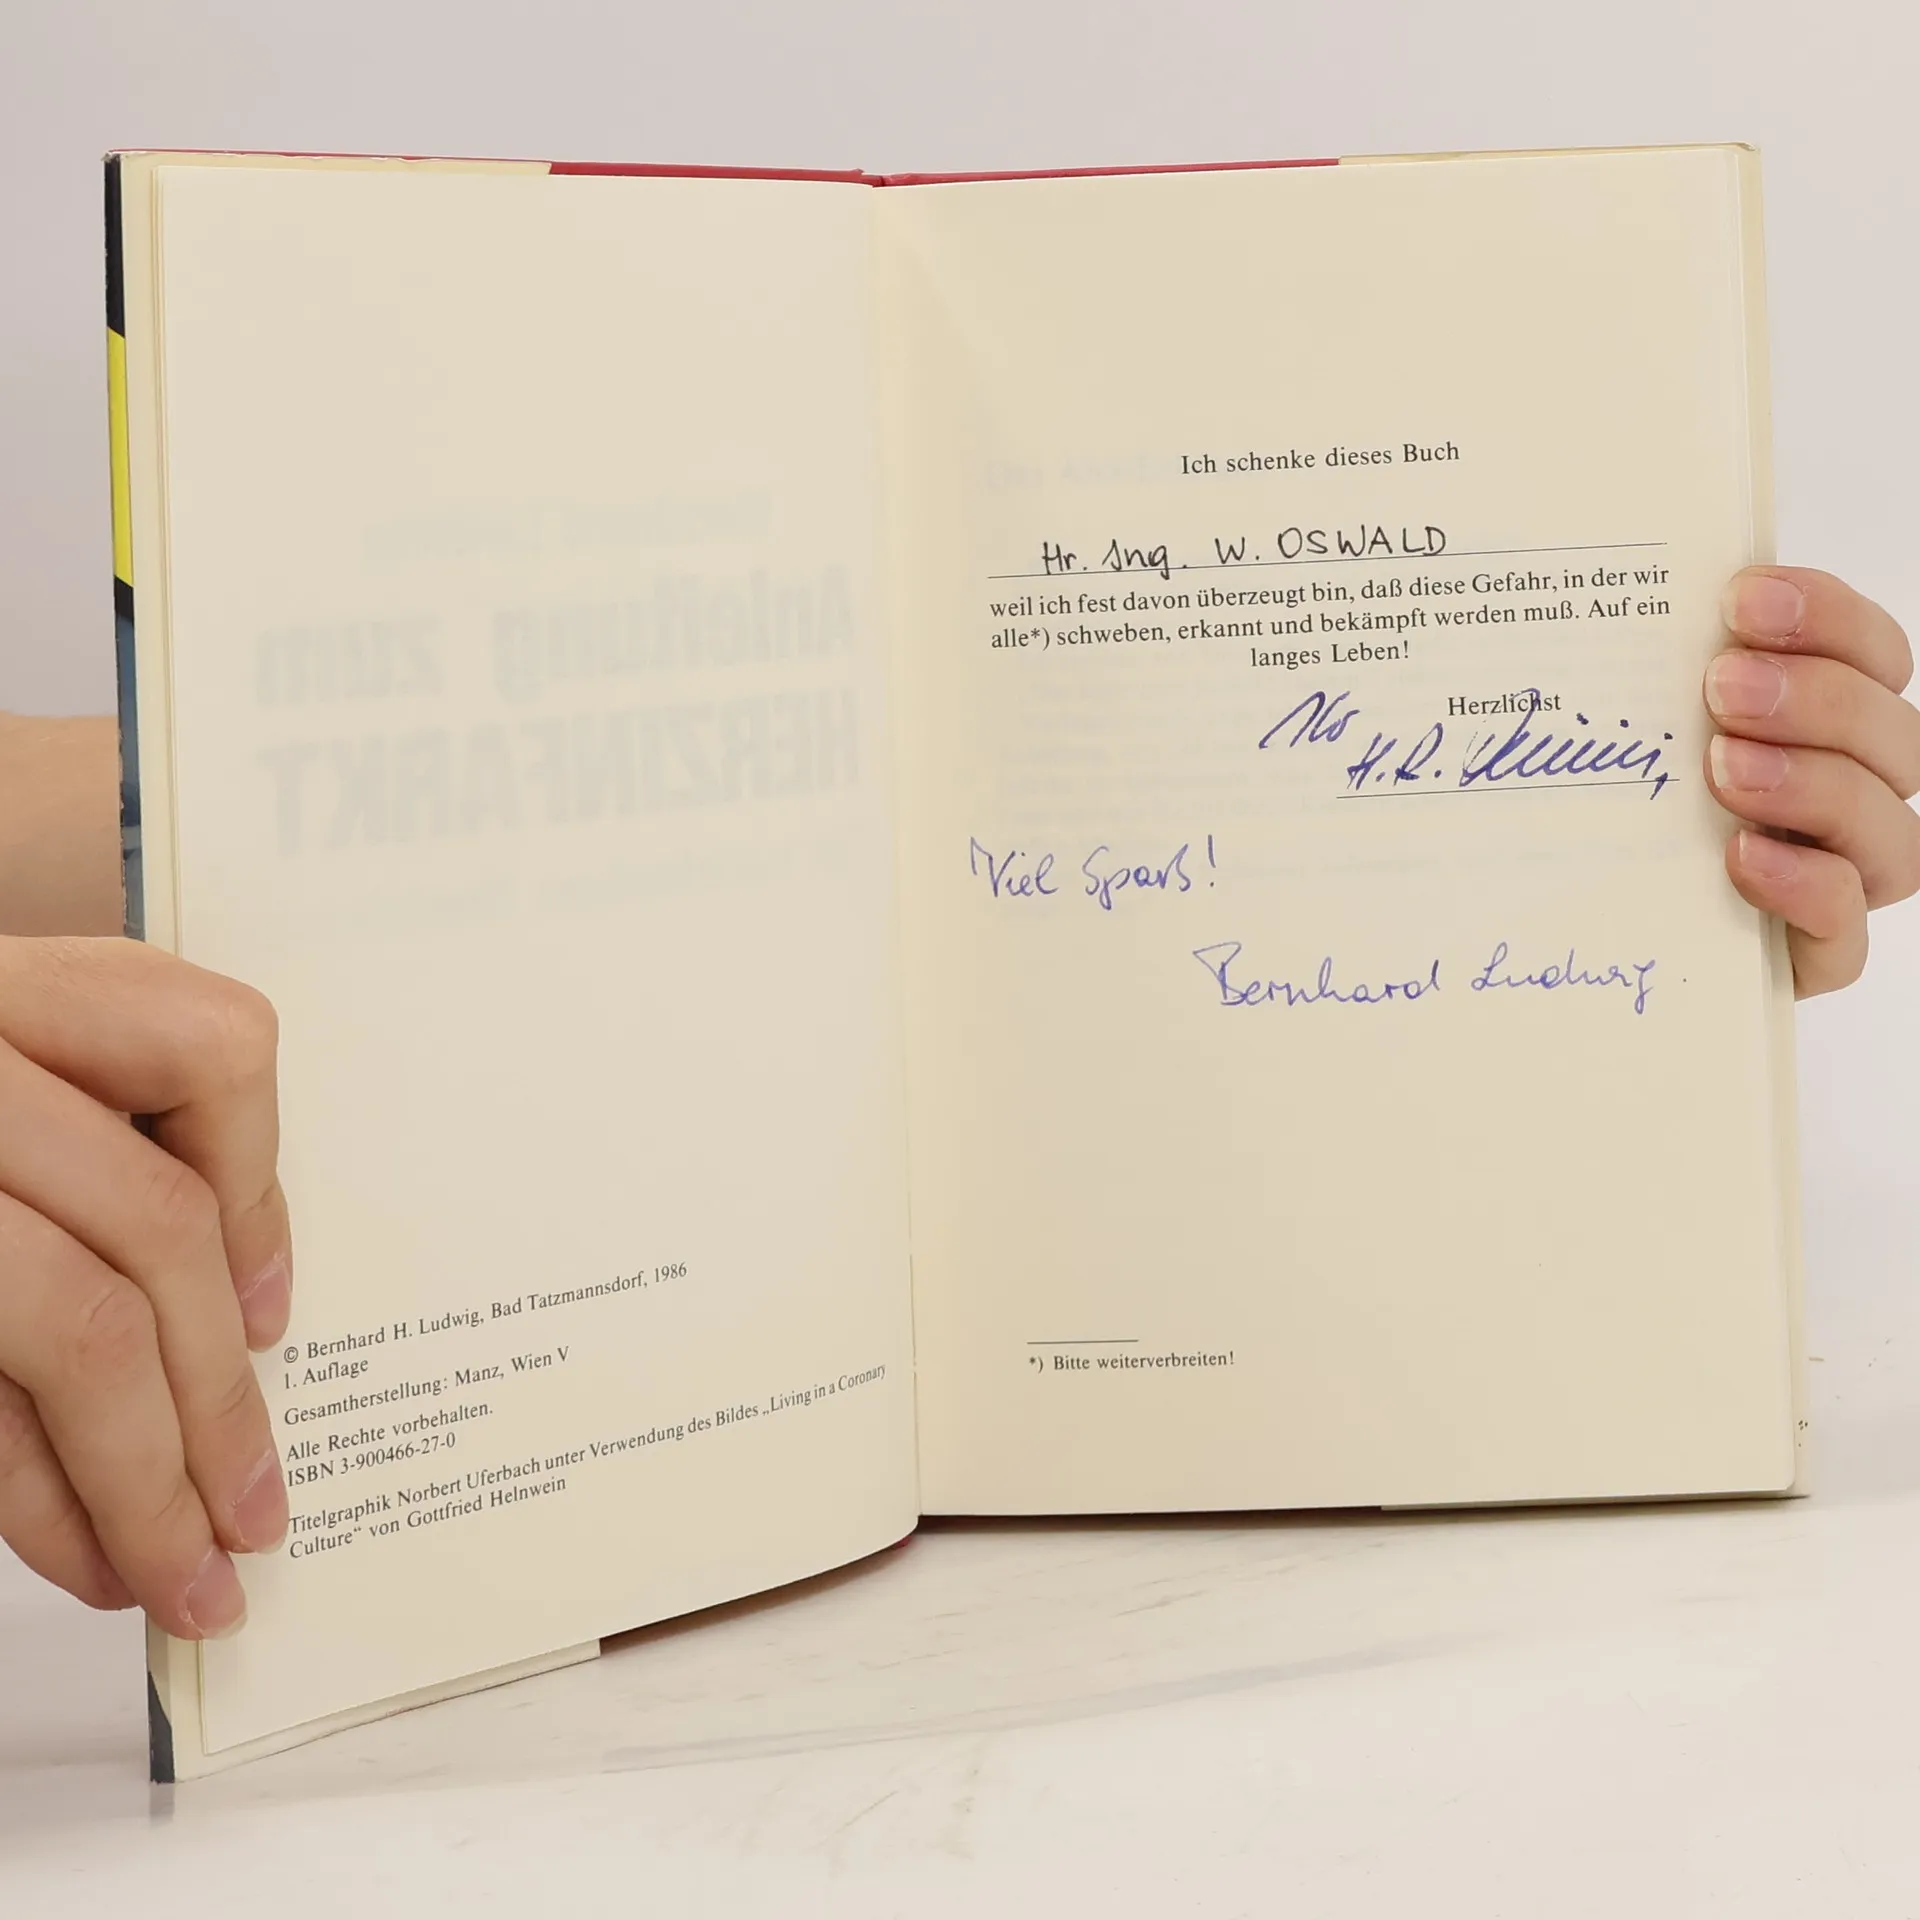 © Bernhard H. Ludwig, Bad Tatzmannsdorf, 1986
1. Auflage
Gesamtherstellung: Manz, Wien V
Alle Rechte vorbehalten.
ISBN 3-900466-27-0
Titelgraphik Norbert Uferbach unter Verwendung des Bildes „Living in a Coronary
Culture“ von Gottfried Helnwein
Ich schenke dieses Buch
Hr. Ing. W. OSWALD
weil ich fest davon überzeugt bin, daß diese Gefahr, in der wir
alle*) schweben, erkannt und bekämpft werden muß. Auf ein
langes Leben!
Herzlichst
H.R.
Viel Spaß!
Bernhard Ludwig
*) Bitte weiterverbreiten!